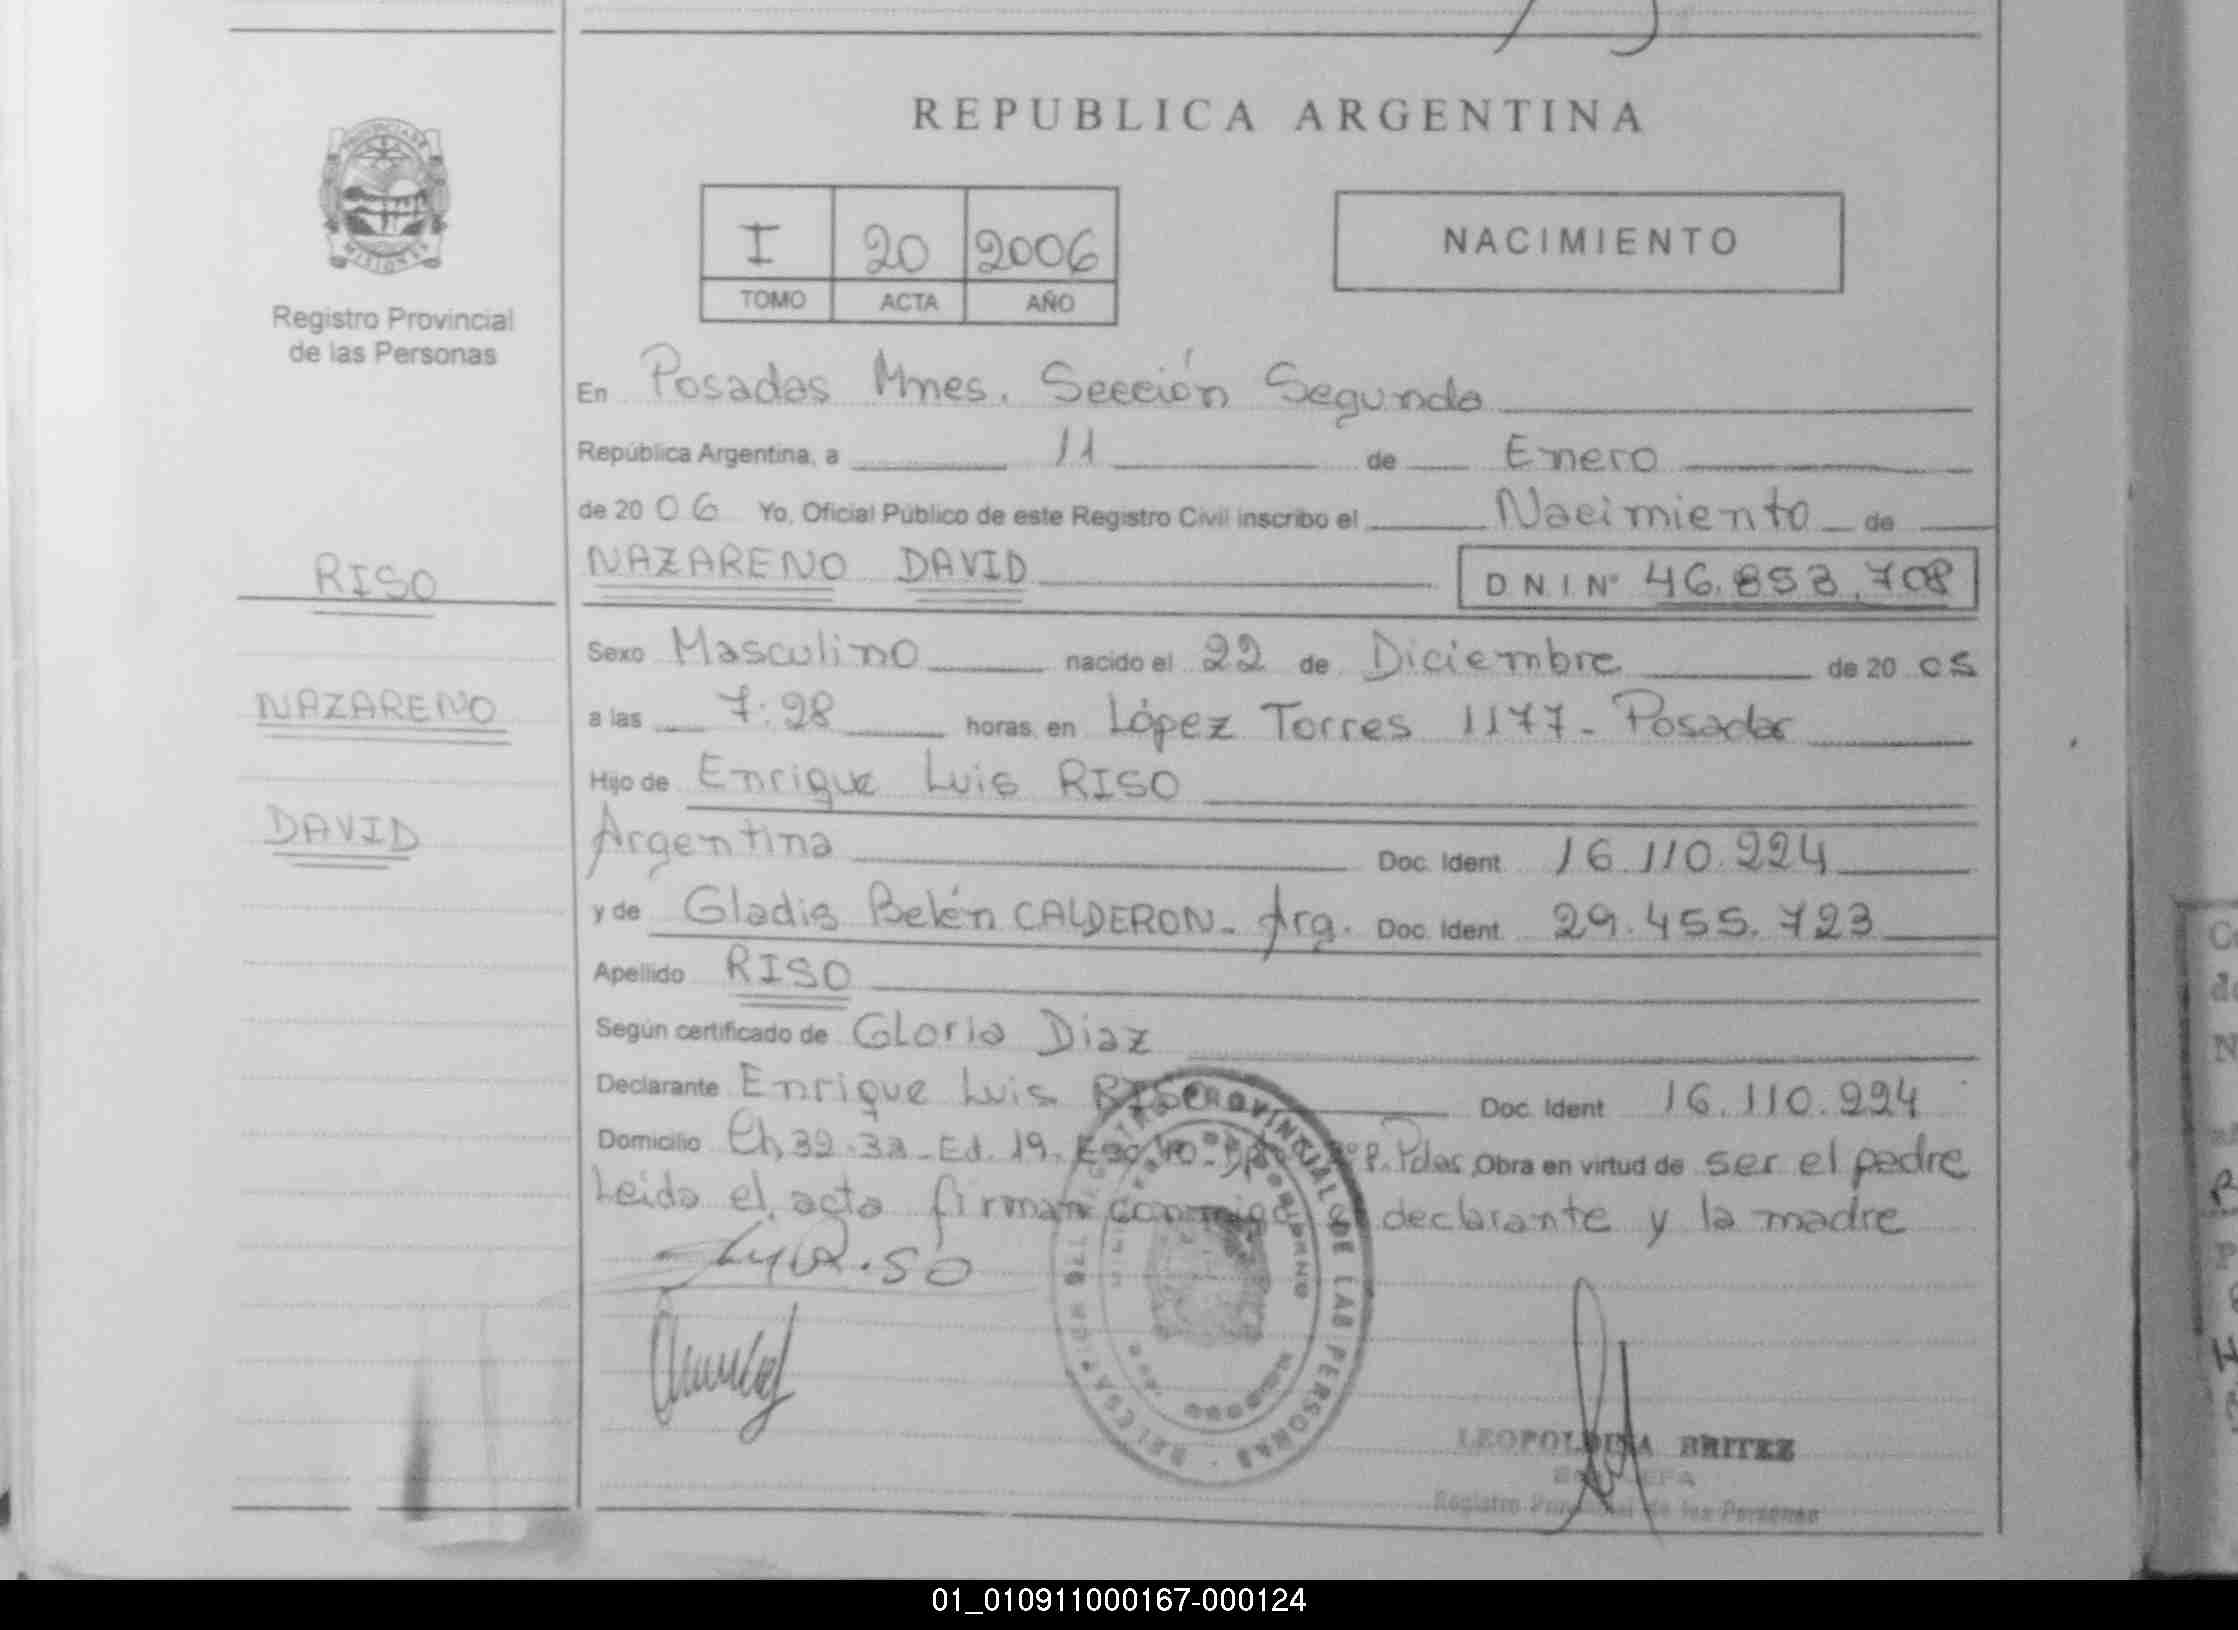 REPUBLICA ARGENTINA
PROVINCIA DE
MISIONES
Registro Provincial
de las Personas
I 20 2006
TOMO ACTA AÑO
NACIMIENTO
En Posadas Mnes. Sección Segunda
República Argentina, a 11 de Enero
de 20 06 Yo, Oficial Público de este Registro Civil inscribo el Nacimiento de
RISO
NAZARENO DAVID D N I Nº 46.853.708
Sexo Masculino nacido el 22 de Diciembre de 20 05
NAZARENO
a las 7:28 horas en López Torres 1177 - Posadas
Hijo de Enrique Luis RISO
DAVID
Argentina Doc. Ident. 16.110.224
y de Gladis Belén CALDERON - Arg. Doc. Ident. 29.455.723
Apellido RISO
Según certificado de Gloria Diaz
Declarante Enrique Luis RISO Doc. Ident 16.110.224
Domicilio Ch. 32-33 - Ed. 19 - P. Pdas. Obra en virtud de ser el padre
Leida el acta firman conmigo el declarante y la madre
REGISTRO PROVINCIAL DE LAS PERSONAS
LEOPOLDINA BRITEZ
JEFA
Registro Provincial de las Personas
01_010911000167-000124